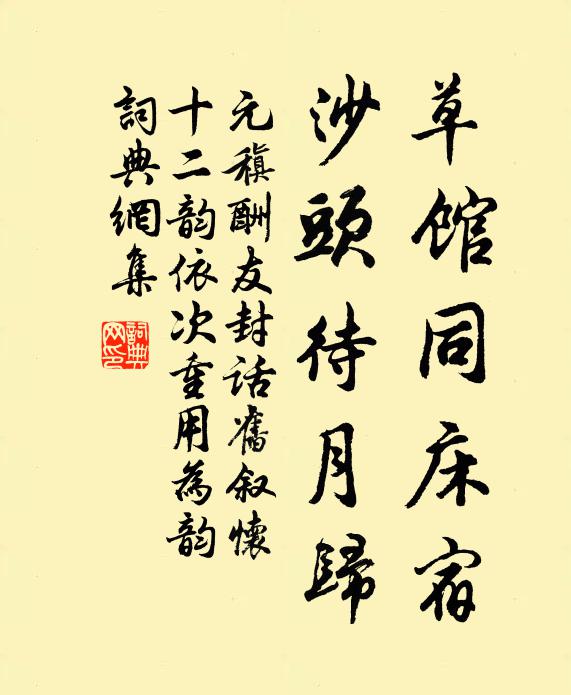 草館同床宿
沙頭待月歸
元稹酬友封話舊叙懷
十二韵依次重用為韵
詞典網集
詞典網印